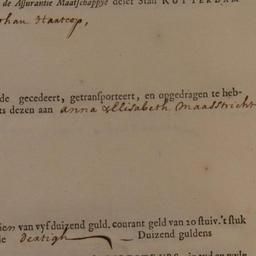 de Assurantie Maatschappye deser Stad ROTTERDAM
Johan Haartop,
de gecedeert, getransporteert, en opgedragen te heb-
ts dezen aan anna & Elisabeth Maasstricht
ien van vyf duizend guld. courant geld van 20 stuiv. 't stuk
le dertigh Duizend guldens